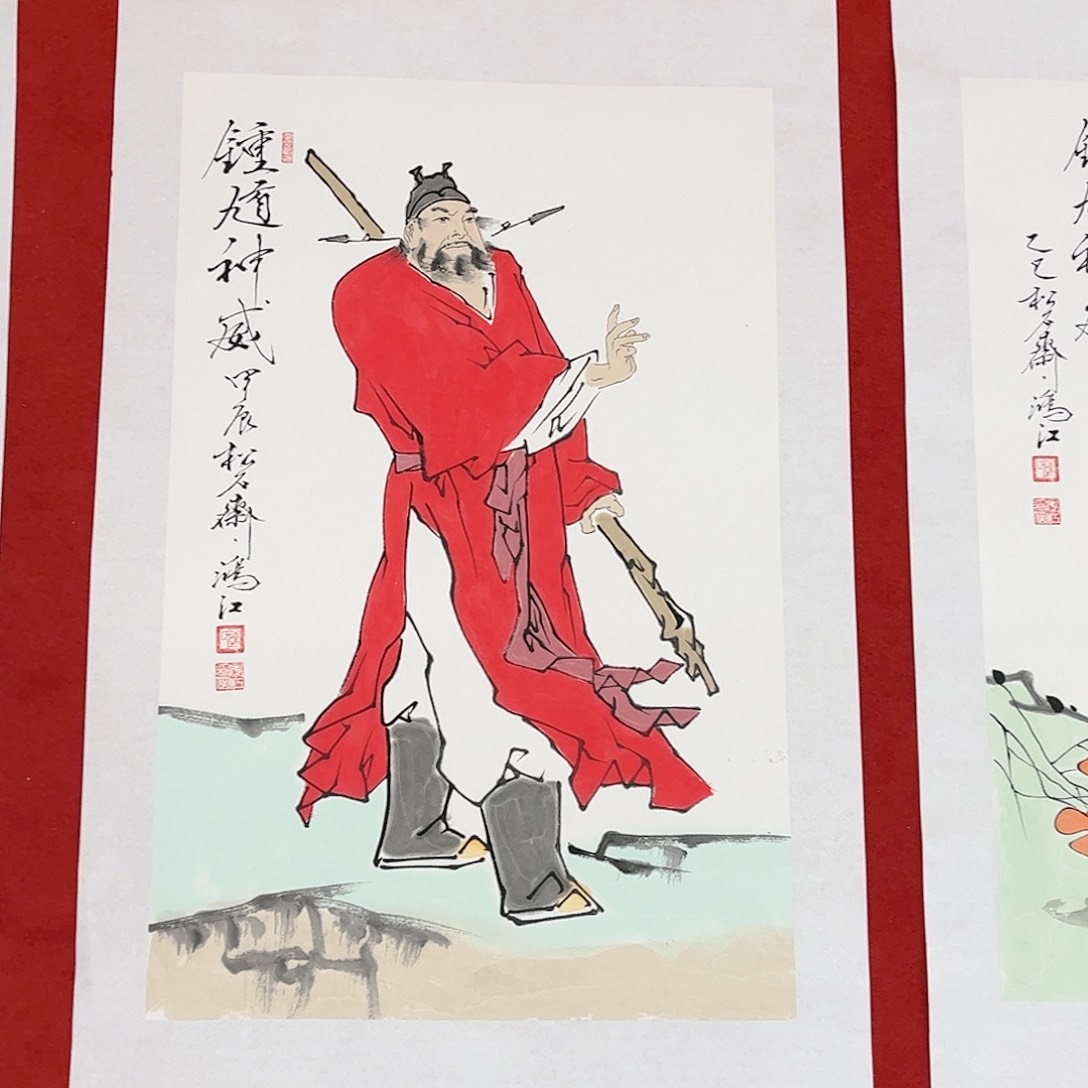 鍾馗神威
甲辰松石齋、鴻江
乙巳松石齋、鴻江